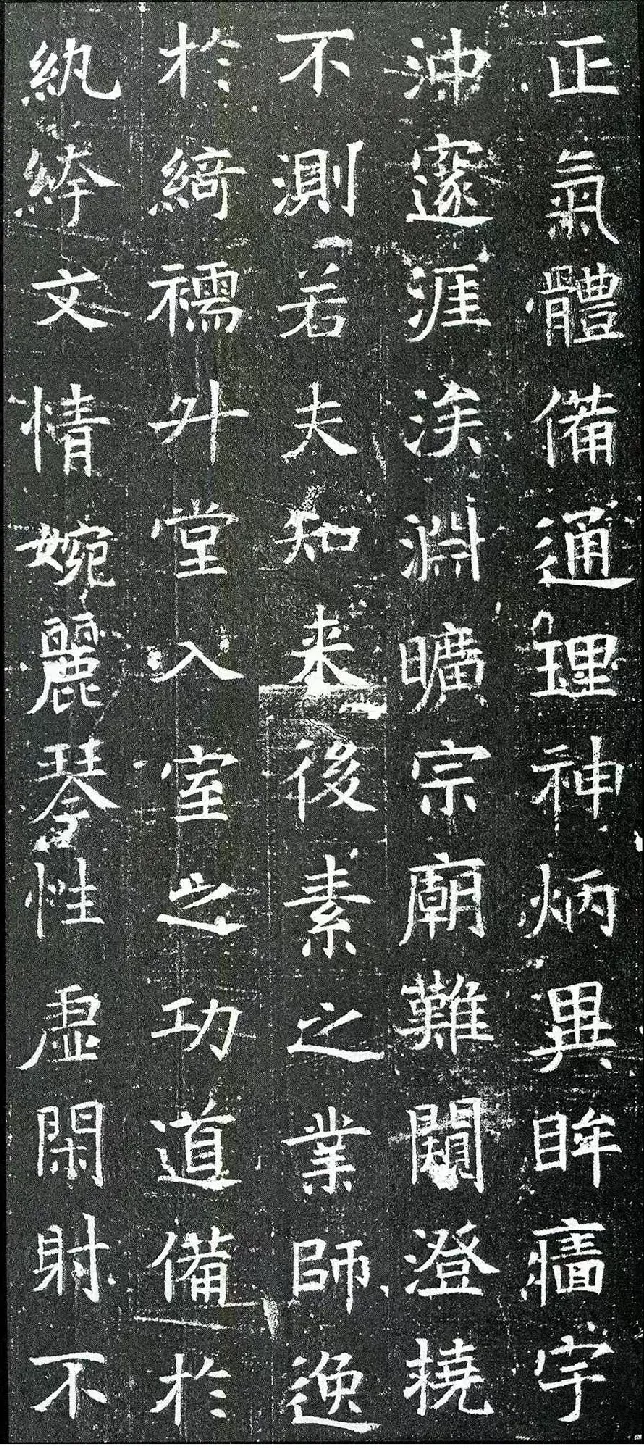 正氣體備通理神炳異眸牆宇
沖邃涯涘淵曠宗廟難闚澄撓
不測若夫知来後素之業師逸
於綺襦外堂入室之功道備於
紈絝文情婉麗琴性虛閑射不